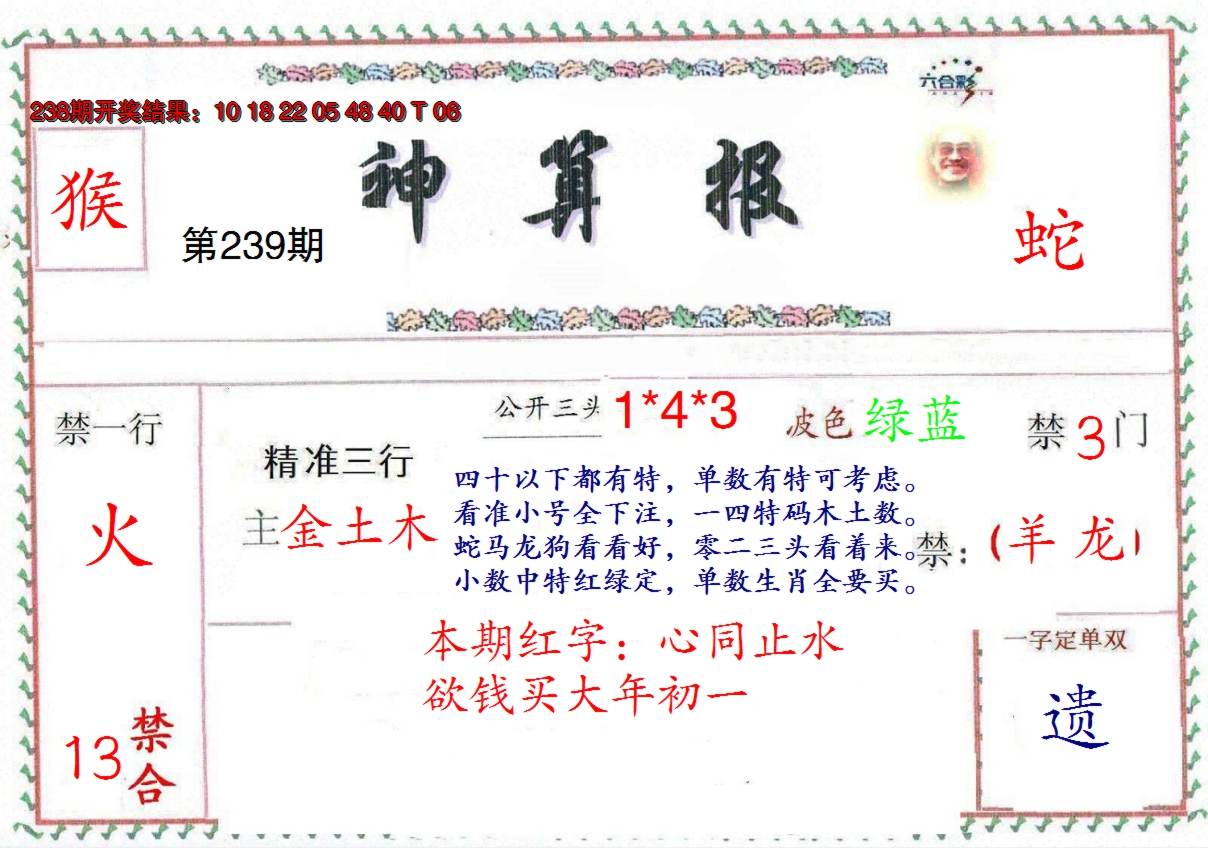 238期开奖结果：10 18 22 05 48 40 T 06
六合彩
猴
神算报
第239期
蛇
禁一行
火
13
禁合
精准三行
主金土木
公开三头 1*4*3
波色 绿蓝
禁3门
四十以下都有特，单数有特可考虑。
看准小号全下注，一四特码木土数。
蛇马龙狗看看好，零二三头看着来。
小数中特红绿定，单数生肖全要买。
禁：(羊 龙)
本期红字：心同止水
欲钱买大年初一
一字定单双
遗